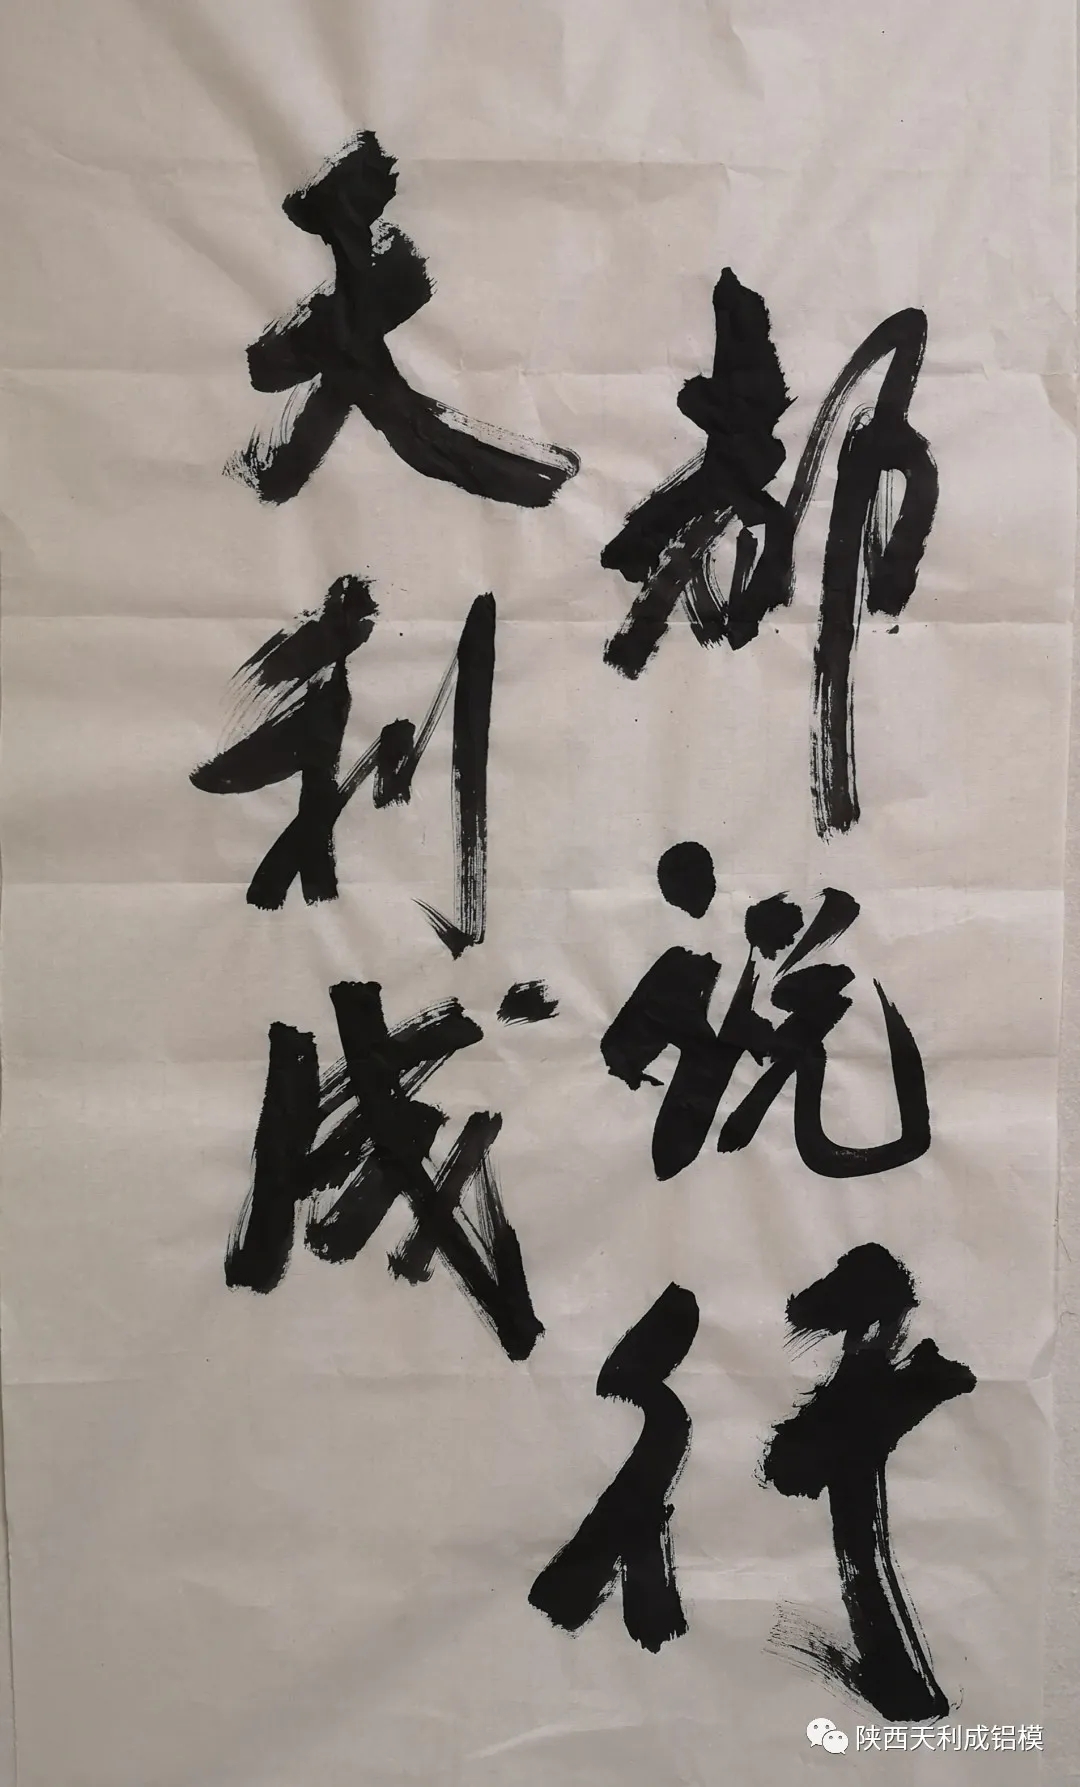 都说行
天利成
陕西天利成铝模